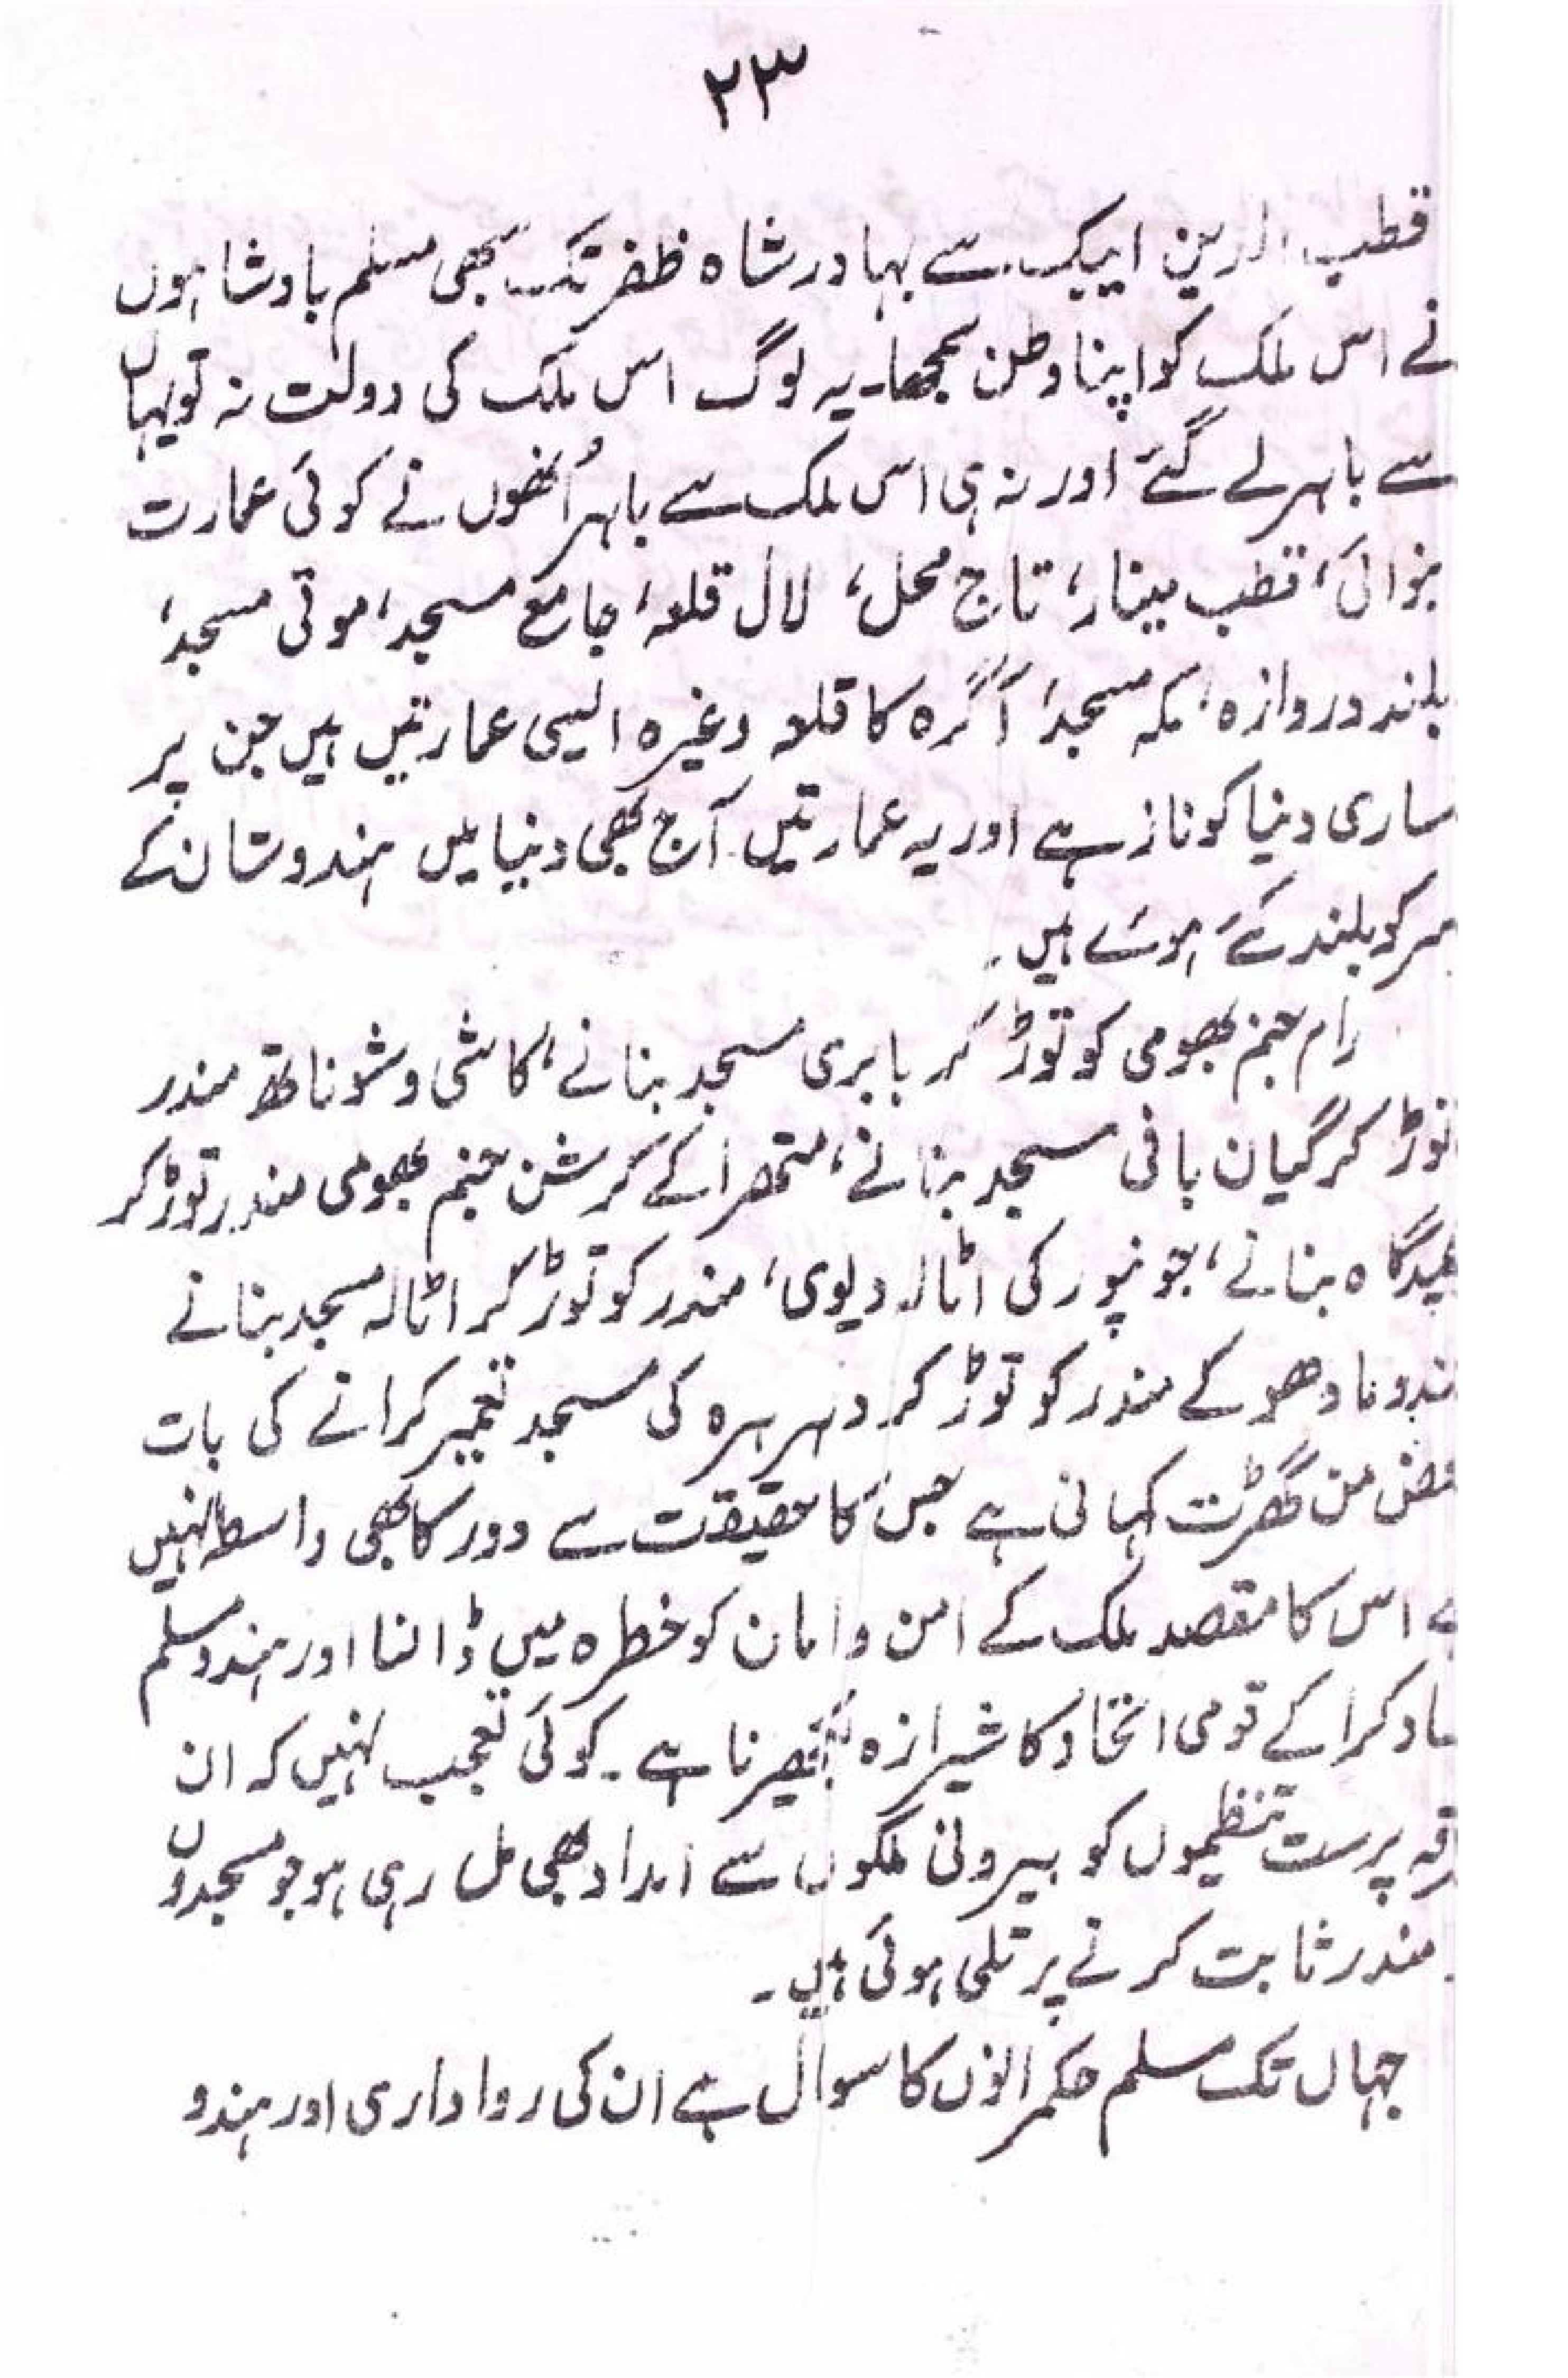 ۲۳
قطب الدین ایبک سے بہادر شاہ ظفر تک سبھی مسلم بادشاہوں
نے اس ملک کو اپنا وطن سمجھا۔ یہ لوگ اس ملک کی دولت نہ تو یہاں
سے باہر لے گئے اور نہ ہی اس ملک سے باہر اُنھوں نے کوئی عمارت
بنوائی، قطب مینار، تاج محل، لال قلعہ، جامع مسجد، موتی مسجد،
بلند دروازہ، مکہ مسجد، آگرہ کا قلعہ وغیرہ ایسی عمارتیں ہیں جن پر
ساری دنیا کو ناز ہے اور یہ عمارتیں آج بھی دنیا میں ہندوستان کے
سر کو بلند کئے ہوئے ہیں۔
رام جنم بھومی کو توڑ کر بابری مسجد بنانے، کاشی وشوناتھ مندر
توڑ کر گیان بافی مسجد بنانے، متھرا کے کرشن جنم بھومی مندر توڑ کر
عیدگاہ بنانے، جونپور کی اٹالہ دیوی، مندر کو توڑ کر اٹالہ مسجد بنانے
مادھو کے مندر کو توڑ کر دہرہرہ کی مسجد تعمیر کرانے کی بات
محض من گھڑت کہانی ہے جس کا حقیقت سے دور کا بھی واسطہ نہیں
ہے اس کا مقصد ملک کے امن و امان کو خطرہ میں ڈالنا اور ہندو مسلم
کرا کے قومی اتحاد کا شیرازہ بکھیرنا ہے۔ کوئی تعجب نہیں کہ ان
پرست تنظیموں کو بیرونی ملکوں سے امداد بھی مل رہی ہو جو مسجدوں
مندر ثابت کرنے پر تلی ہوئی ہیں۔
جہاں تک مسلم حکمرانوں کا سوال ہے ان کی رواداری اور ہندو